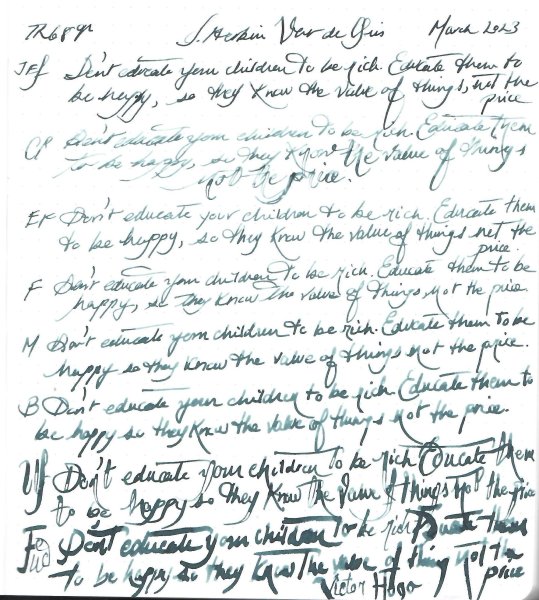 TR68gr J. Herbin Vert de Gris March 2023
JFf Don't educate your children to be rich. Educate them to
be happy, so they know the value of things, not the
price
CP Don't educate your children to be rich. Educate them
to be happy, so they know the value of things
not the price.
EF Don't educate your children to be rich. Educate them
to be happy, so they know the value of things not the
price.
F Don't educate your children to be rich. Educate them to be
happy, so they know the value of things not the price.
M Don't educate your children to be rich. Educate them to be
happy so they know the value of things not the price.
B Don't educate your children to be rich. Educate them to
be happy so they know the value of things not the price.
Uf Don't educate your children to be rich Educate them
to be happy so they know the value of things not the price
Fude Don't educate your children to be rich Educate them
to be happy so they know the value of thing not the
price
Victor Hugo